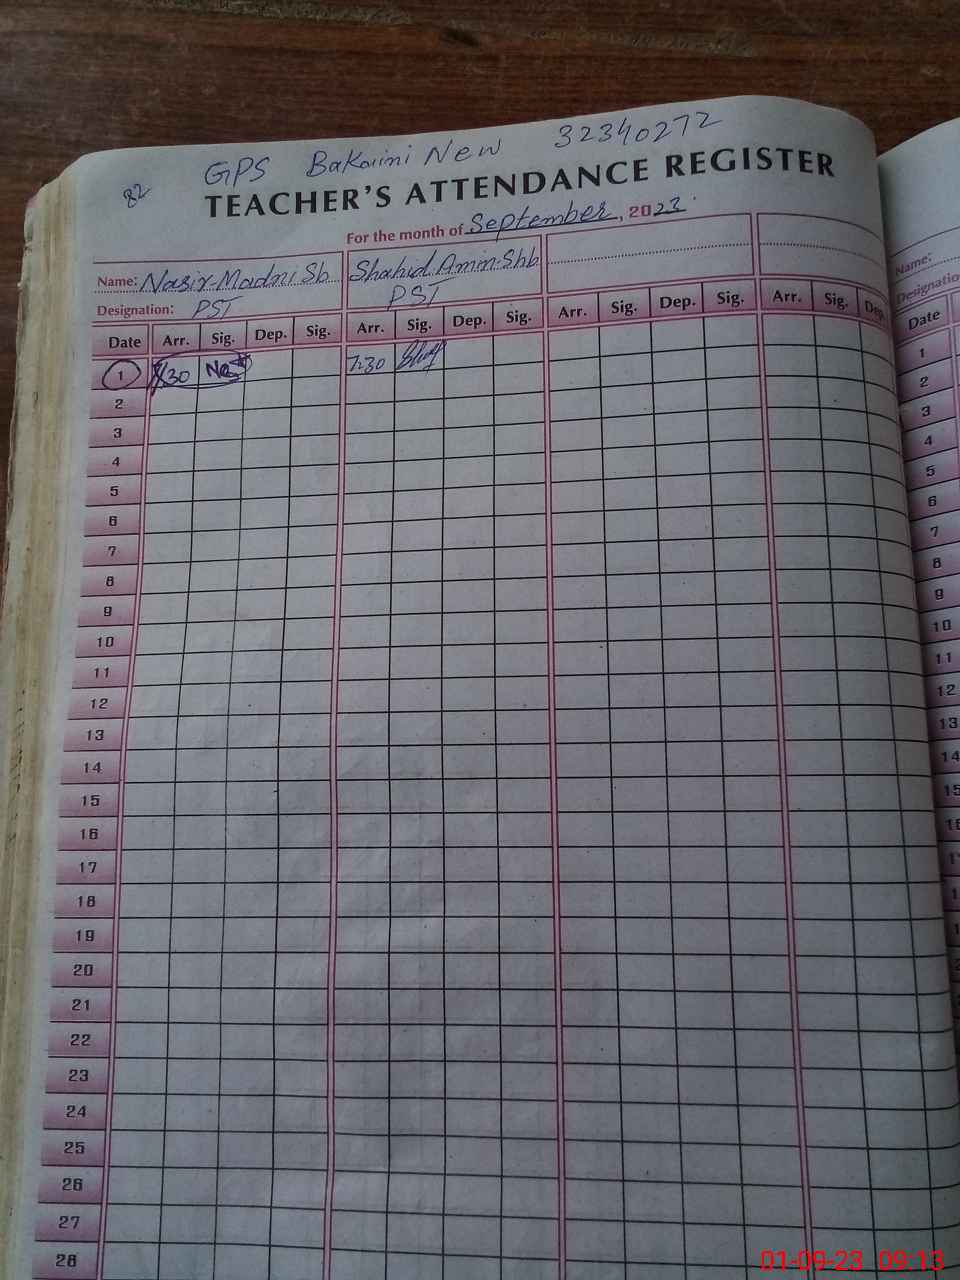 GPS Bakaimi New 32340272
82
TEACHER'S ATTENDANCE REGISTER
For the month of September, 2023
Name: Nasir Madni Sb Shahid Amin Shb
Designation: PST PST
Date Arr. Sig. Dep. Sig. Arr. Sig. Dep. Sig. Arr. Sig. Dep. Sig. Arr. Sig. Dep.
1 7:30
2
3
4
5
6
7
8
9
10
11
12
13
14
15
16
17
18
19
20
21
22
23
24
25
26
27
28
Name:
Designatio
Date
1
2
3
4
5
6
7
8
9
10
11
12
13
14
15
16
01-09-23 09:13